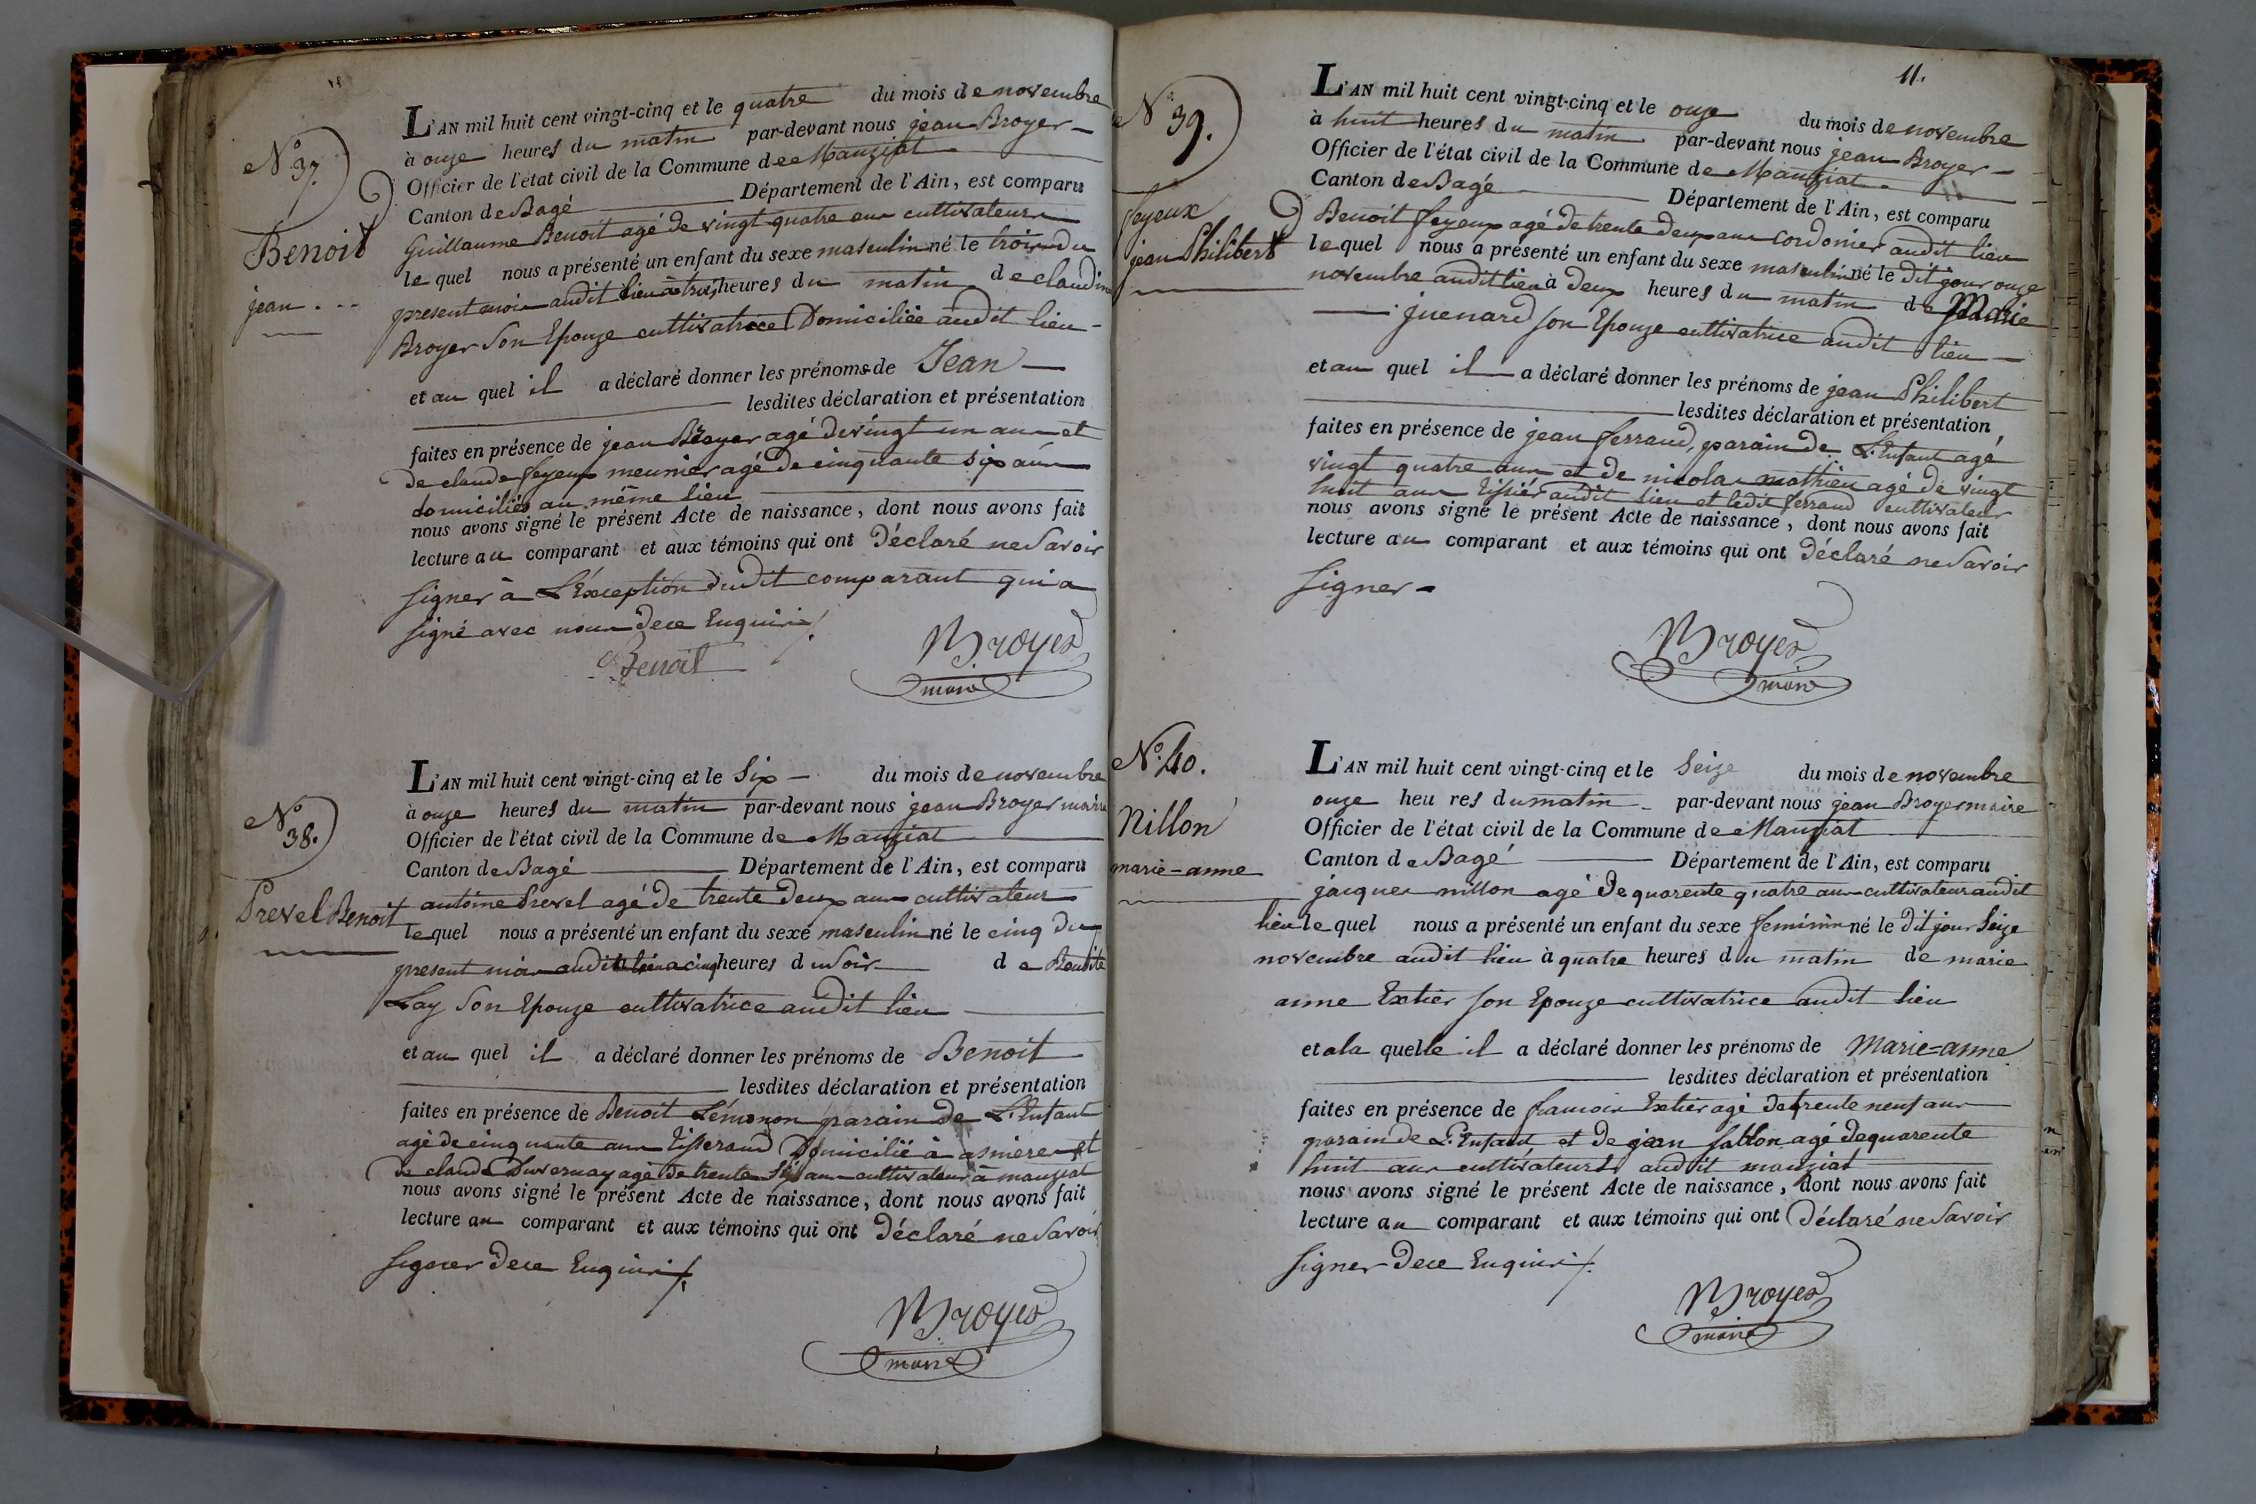 N° 37.
Benoit
jean
L'AN mil huit cent vingt-cinq et le quatre du mois de novembre
à onze heures du matin par-devant nous jean Broyer
Officier de l'état civil de la Commune de Manziat
Canton de Bagé Département de l'Ain, est comparu
Guillaume Benoit agé de vingt quatre ans cultivateur
le quel nous a présenté un enfant du sexe masculin né le trois du
present mois audit lieu à trois heures du matin de claudine
Broyer Son Epouze cultivatrice Domiciliée audit lieu
et au quel il a déclaré donner les prénoms de Jean
lesdites déclaration et présentation
faites en présence de jean Broyer agé de vingt un ans et
de claude feyeux meunier agé de cinquante six ans
domiciliés au même lieu
nous avons signé le présent Acte de naissance, dont nous avons fait
lecture au comparant et aux témoins qui ont Déclaré ne Savoir
signer à L'Exception dudit comparant qui a
signé avec nous de ce Enquiri
Benoit
Broyer
maire
N° 38.
Prevel Benoit
L'AN mil huit cent vingt-cinq et le Six du mois de novembre
à onze heures du matin par-devant nous jean Broyer maire
Officier de l'état civil de la Commune de Manziat
Canton de Bagé Département de l'Ain, est comparu
antoine Prevel agé de trente deux ans cultivateur
le quel nous a présenté un enfant du sexe masculin né le cinq du
present mois audit lieu a cinq heures du soir de Benoite
Lay Son Epouze cultivatrice audit lieu
et au quel il a déclaré donner les prénoms de Benoit
lesdites déclaration et présentation
faites en présence de Benoit Lémonon parain de L'Enfant
agé de cinquante ans Tisserand Domicilié à asnières et
de claude Duvernay agé de trente six ans cultivateur à manziat
nous avons signé le présent Acte de naissance, dont nous avons fait
lecture au comparant et aux témoins qui ont Déclaré ne Savoir
signer de ce Enquiri
Broyer
maire
11.
N° 39.
feyeux
jean Philibert
L'AN mil huit cent vingt-cinq et le onze du mois de novembre
à huit heures du matin par-devant nous jean Broyer
Officier de l'état civil de la Commune de Manziat
Canton de Bagé Département de l'Ain, est comparu
Benoit feyeux agé de trente deux ans Cordonier audit lieu
le quel nous a présenté un enfant du sexe masculin né le dit jour onze
novembre audit lieu à deux heures du matin de Marie
juenard son Epouze cultivatrice audit lieu
et au quel il a déclaré donner les prénoms de jean Philibert
lesdites déclaration et présentation
faites en présence de jean ferrand, parain de L'Enfant agé
vingt quatre ans et de nicolas mathieu agé de vingt
huit ans Tissier audit lieu et ledit ferrand cultivateur
nous avons signé le présent Acte de naissance, dont nous avons fait
lecture au comparant et aux témoins qui ont Déclaré ne Savoir
signer
Broyer
maire
N° 40.
Nillon
marie-anne
L'AN mil huit cent vingt-cinq et le Seize du mois de novembre
onze heures du matin par-devant nous jean Broyer maire
Officier de l'état civil de la Commune de Manziat
Canton de Bagé Département de l'Ain, est comparu
jacques nillon agé de quarente quatre ans cultivateur audit
lieu le quel nous a présenté un enfant du sexe feminin né le dit jour Seize
novembre audit lieu à quatre heures du matin de marie
anne Extier son Epouze cultivatrice audit lieu
et a la quelle il a déclaré donner les prénoms de Marie=anne
lesdites déclaration et présentation
faites en présence de francois Extier agé de trente neuf ans
parain de L'Enfant et de jean fatton agé de quarente
huit ans cultivateurs audit manziat
nous avons signé le présent Acte de naissance, dont nous avons fait
lecture au comparant et aux témoins qui ont Déclaré ne Savoir
signer de ce Enquiri
Broyer
maire